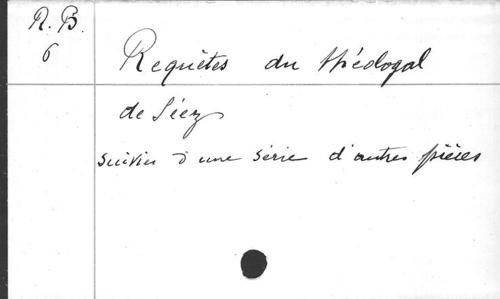 R. B.
6
Requêtes du théologal
de Séez
suivies d'une série d'autres pièces